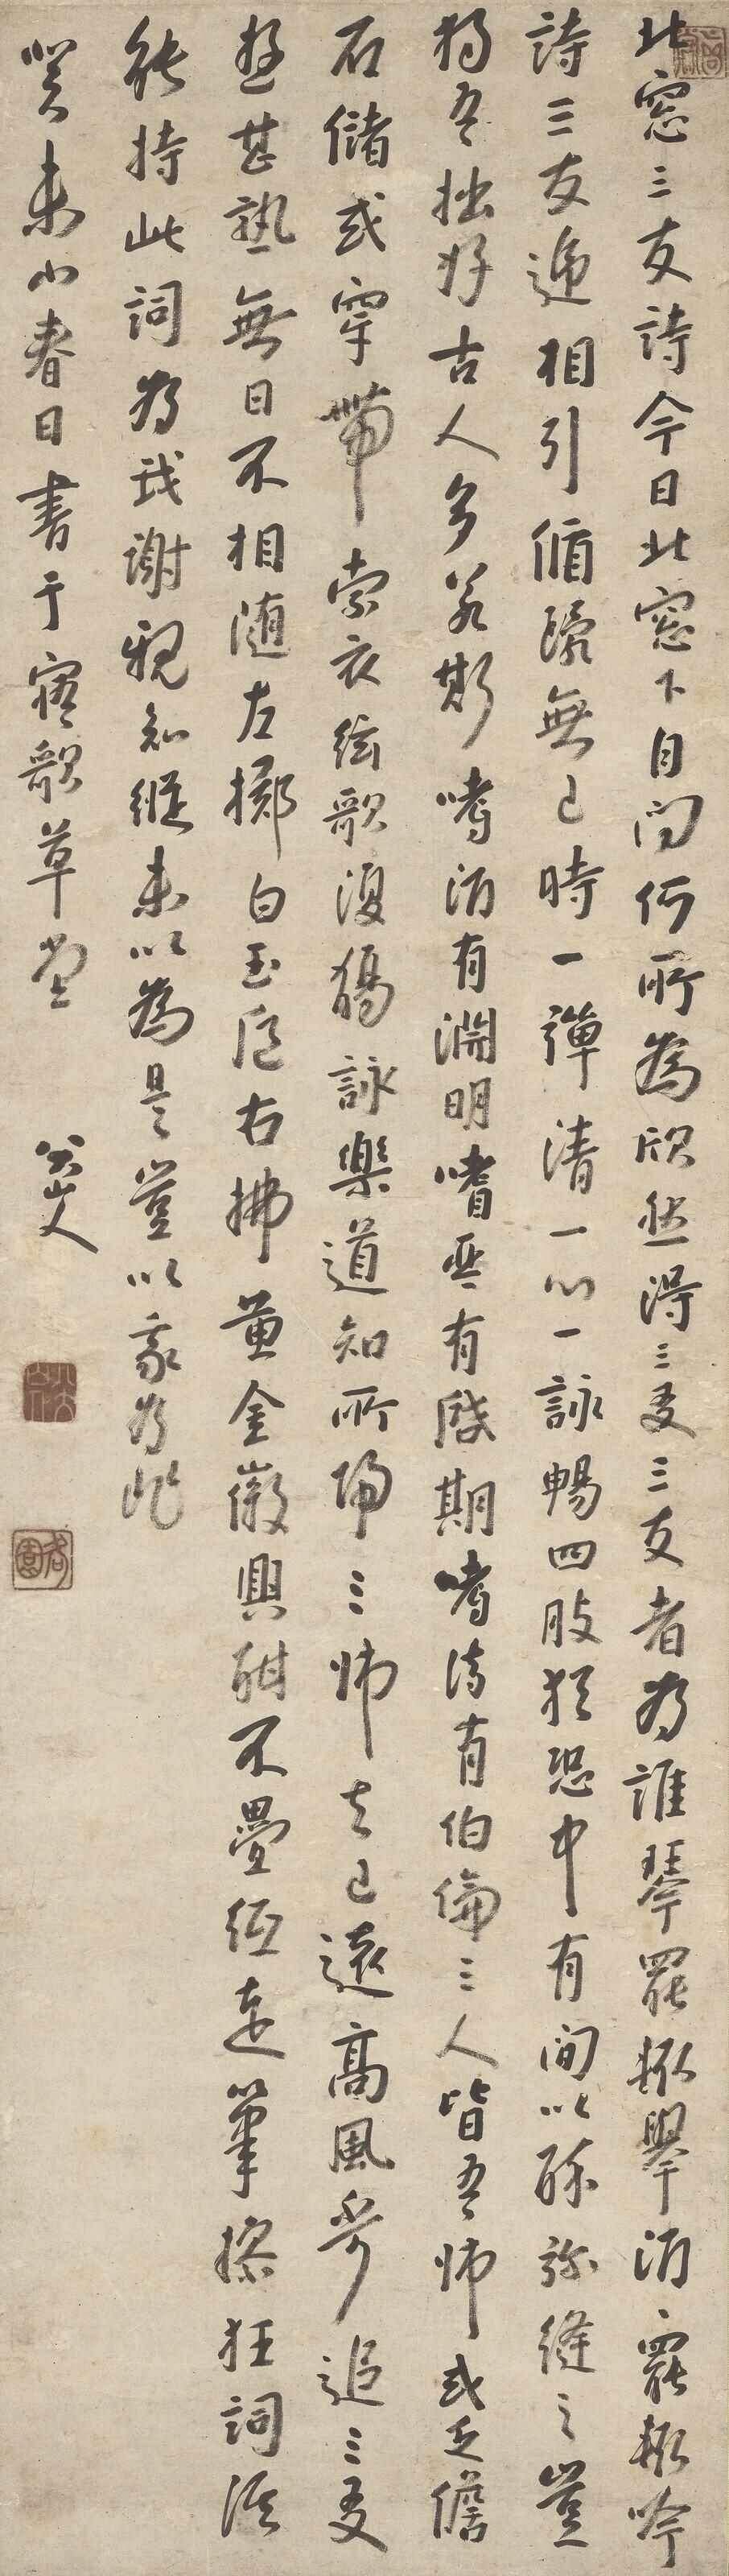 北窓三友詩今日北窓下自问何所為欣然得三友三友者为誰琴罷輒舉酒、罷輒吟
詩三友递相引循環無已時一彈清一心一詠暢四肢犹恐中有间以酔弥縫之豈
独吾拙好古人多若斯嗜酒有淵明嗜琴有啓期嗜诗有伯倫三人皆吾师或乏儋
石儲或穿带索衣絃歌復觴詠樂道知所歸三师去已遠高風步追三友
遊甚熟無日不相随左擲白玉卮右拂黄金徽興酣不疊纸走筆操狂詞谁
能持此詞为我謝親知縱未以為是豈以我为非
癸未小春日書于寤歌草堂 八大山人
八大山人